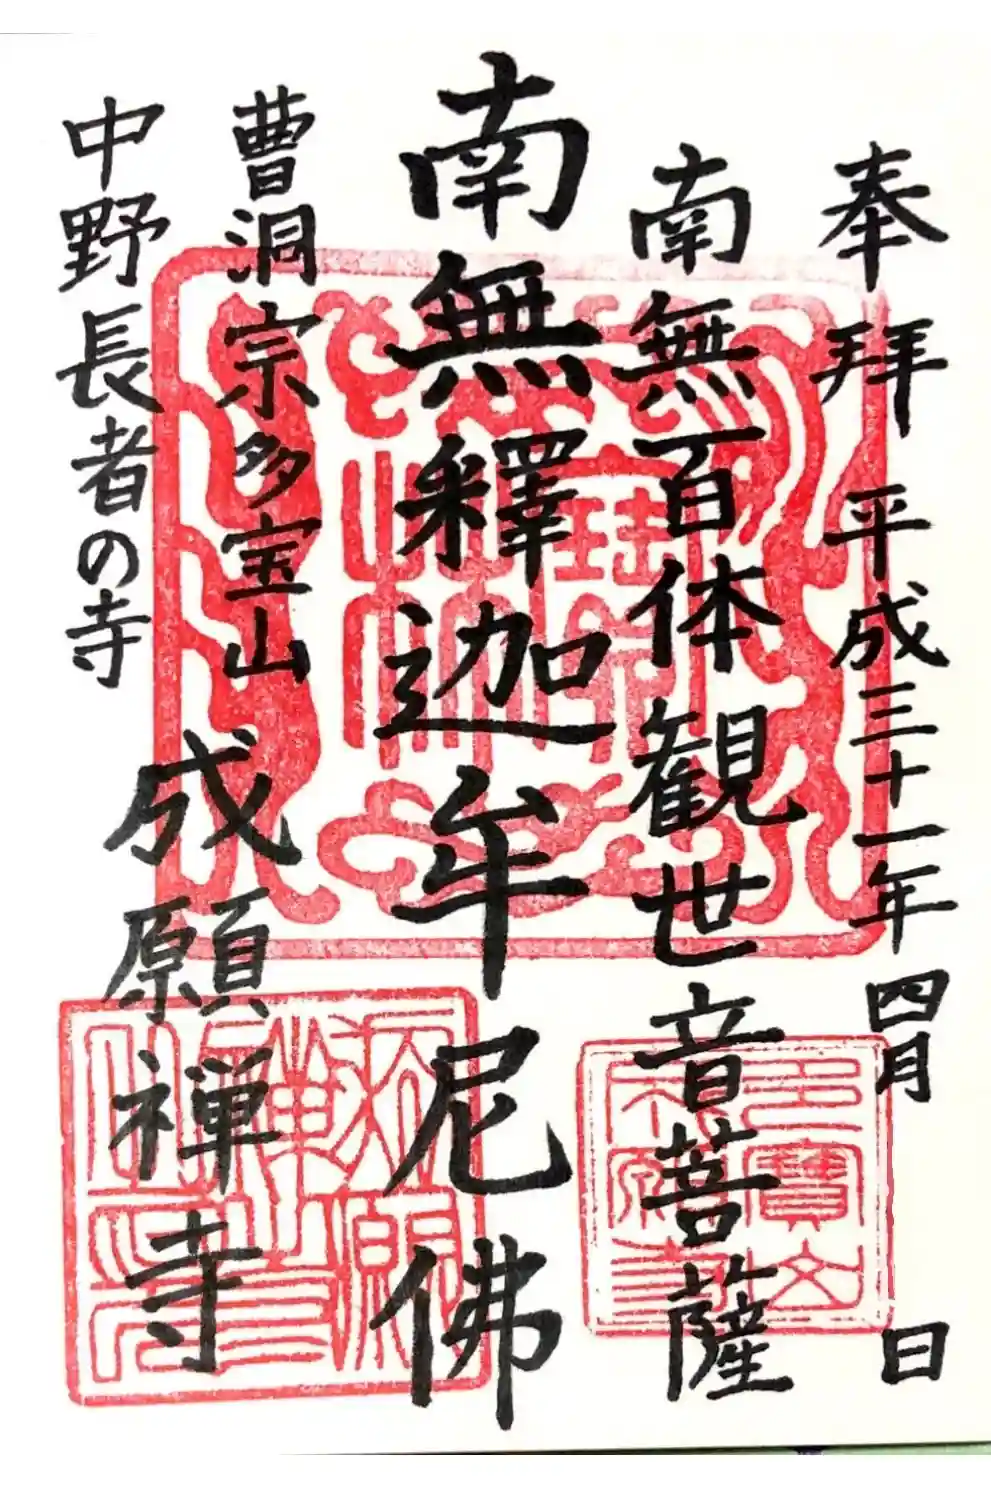 奉拝 平成三十一年四月 日
南無百体観世音菩薩
南無釋迦牟尼佛
曹洞宗多宝山
成願禅寺
中野長者の寺